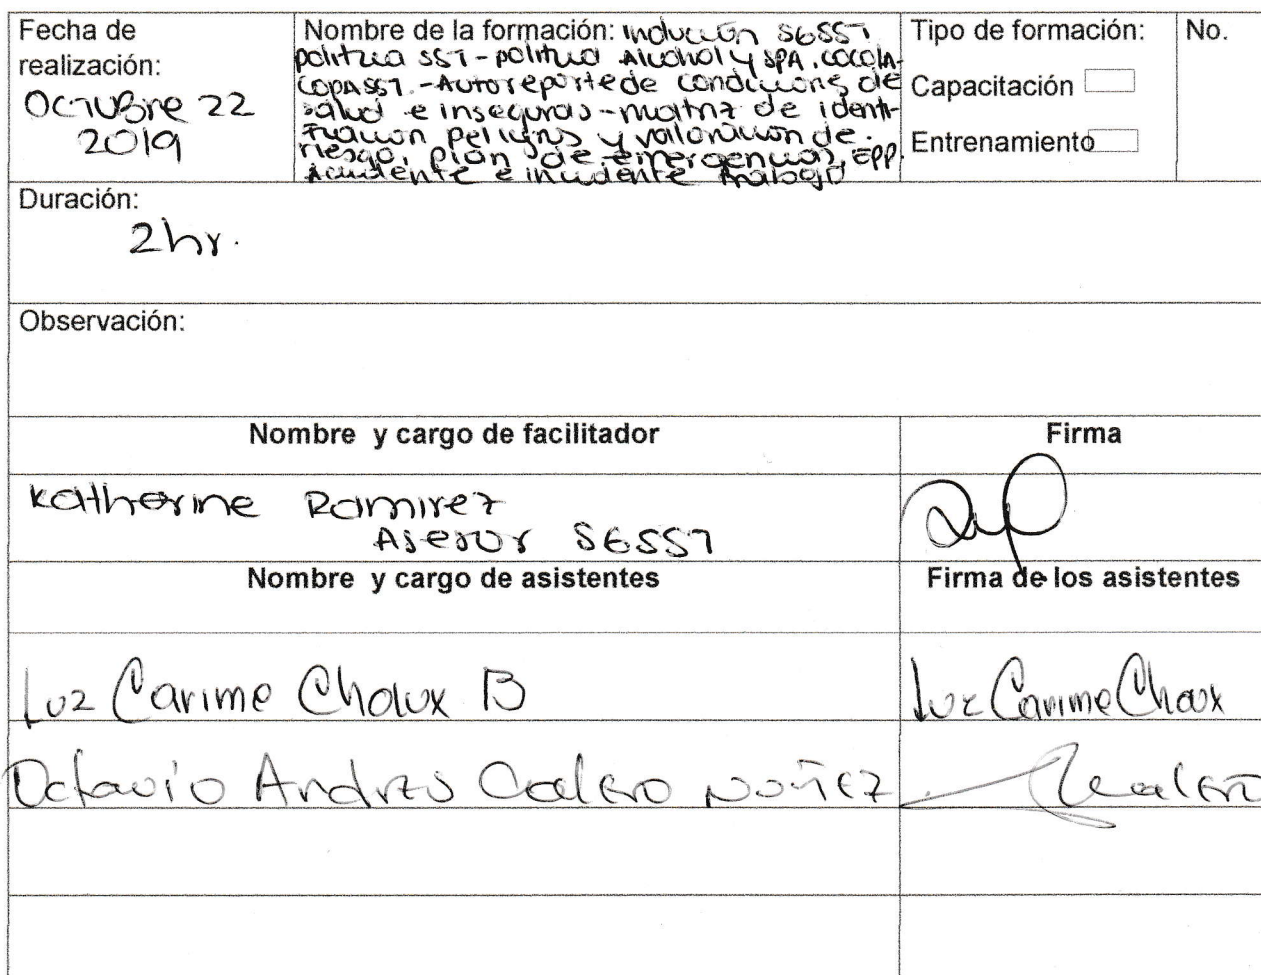 Fecha de
realización:
Octubre 22
2019
Nombre de la formación: Inducción SGSST
politica SST - politica Alcohol y SPA. COCOLA-
COPASST. - Autoreporte de condiciones de
salud e inseguras - matriz de identi-
ficacion peligros y valoracion de
riesgo, plan de emergencias, EPP.
Accidente e incidente
Tipo de formación:
Capacitación
Entrenamiento
No.
Duración:
2hr.
Observación:
Nombre y cargo de facilitador
Firma
Katherine Ramirez
Asesor SGSST
Nombre y cargo de asistentes
Firma de los asistentes
Luz Carime Chaux B
Luz Carime Chaux
Octavio Andres Calero Nuñez
Calero